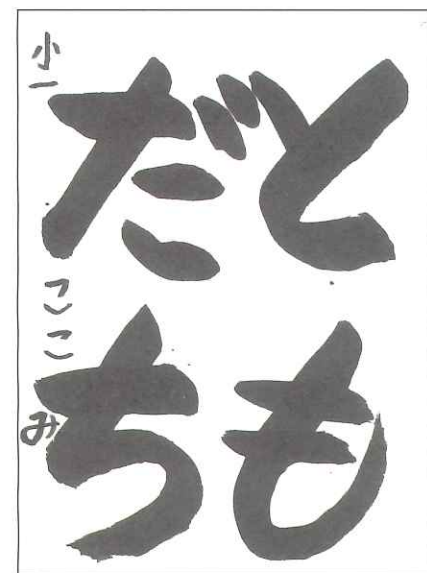 とも
だち
小一 ここみ